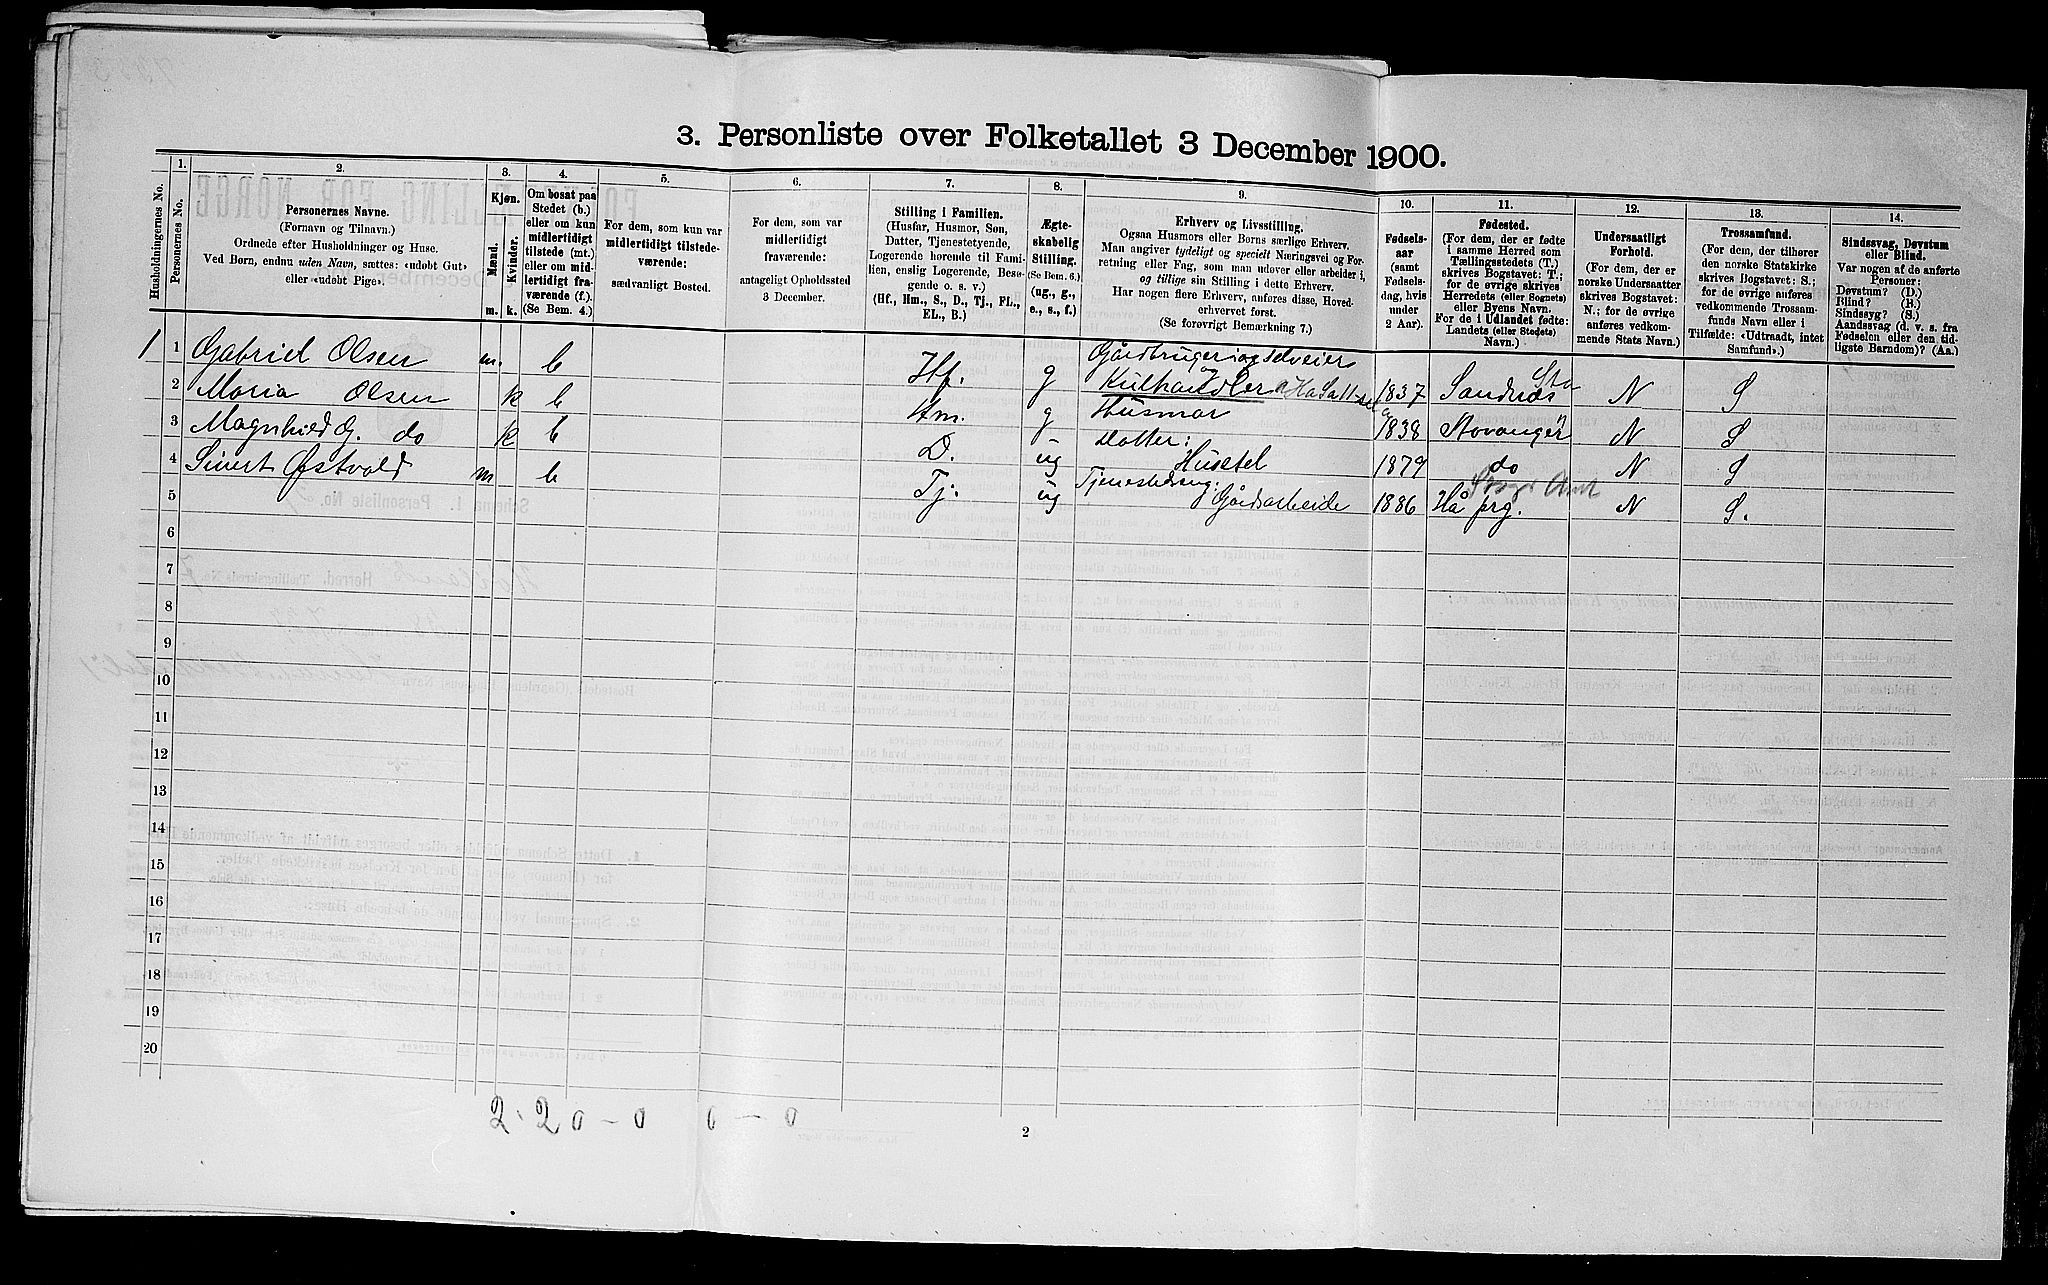 3. Personliste over Folketallet 3 December 1900.
Husholdningernes No.
1.
Personernes No.
2.
Personernes Navne.
(Fornavn og Tilnavn.)
Ordnede efter Husholdninger og Huse.
Ved Børn, endnu uden Navn, sættes: «udøbt Gut»
eller «udøbt Pige».
3.
Kjøn.
Mænd.
Kvinder.
m.
k.
4.
Om bosat paa
Stedet (b.)
eller om kun
midlertidigt
tilstede (mt.)
eller om mid-
lertidigt fra-
værende (f.).
(Se Bem. 4.)
5.
For dem, som kun var
midlertidigt tilstede-
værende:
sædvanligt Bosted.
6.
For dem, som var
midlertidigt
fraværende:
antageligt Opholdssted
3 December.
7.
Stilling i Familien.
(Husfar, Husmor, Søn,
Datter, Tjenestetyende,
Logerende hørende til Fami-
lien, enslig Logerende, Besø-
gende o. s. v.)
(Hf., Hm., S., D., Tj., FL.,
EL., B.)
8.
Ægte-
skabelig
Stilling.
(Se Bem. 6.)
(ug., g.,
e., s., f.)
9.
Erhverv og Livsstilling.
Ogsaa Husmors eller Børns særlige Erhverv.
Man angiver tydeligt og specielt Næringsvei og For-
retning eller Fag, som man udøver eller arbeider i,
og tillige sin Stilling i dette Erhverv.
Har nogen flere Erhverv, anføres disse, Hoved-
erhvervet først.
(Se forøvrigt Bemærkning 7.)
10.
Fødsels-
aar
(samt
Fødsels-
dag, hvis
under
2 Aar).
11.
Fødested.
(For dem, der er fødte
i samme Herred som
Tællingsstedets (T.)
skrives Bogstavet: T.;
for de øvrige skrives
Herredets (eller Sognets)
eller Byens Navn.
For de i Udlandet fødte:
Landets (eller Stedets)
Navn.)
12.
Undersaatligt
Forhold.
(For dem, der er
norske Undersaatter
skrives Bogstavet:
N.; for de øvrige
anføres vedkom-
mende Stats Navn.)
13.
Trossamfund.
(For dem, der tilhører
den norske Statskirke
skrives Bogstavet: S.;
for de øvrige anføres
vedkommende Trossam-
funds Navn eller i
Tilfælde: «Udtraadt, intet
Samfund».)
14.
Sindssvag, Døvstum
eller Blind.
Var nogen af de anførte
Personer:
Døvstum? (D.)
Blind? (B.)
Sindssyg? (S.)
Aandssvag (d. v. s. fra
Fødselen eller den tid-
ligste Barndom)? (Aa.)
1 1 Gabriel Olsen m. b Hf. g Gårdbruger og selveier
og Kulhandler 1837 Sandnæs Sta N S
2 Maria Olsen k b Hm. g Husmor 1838 Stavanger N S
3 Magnhild G. do k b D. ug Datter: Husstel 1879 do N S
4 Sivert Østvold m b Tj. ug Tjenestedreng: Gårdsarbeide 1886 Hå prg. Amt N S.
5
6
7
8
9
10
11
12
13
14
15
16
17
18
19
20
2 . 2 0 - 0 0 - 0
2